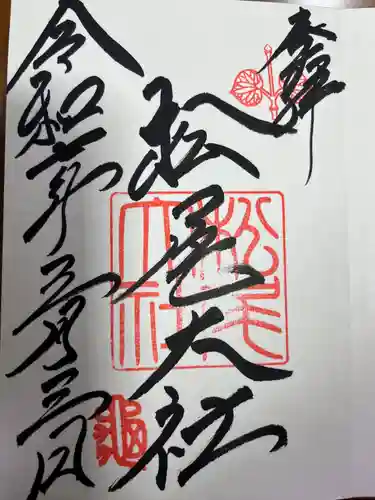 奉拝
松尾大社
松尾大社
令和六年三月三日